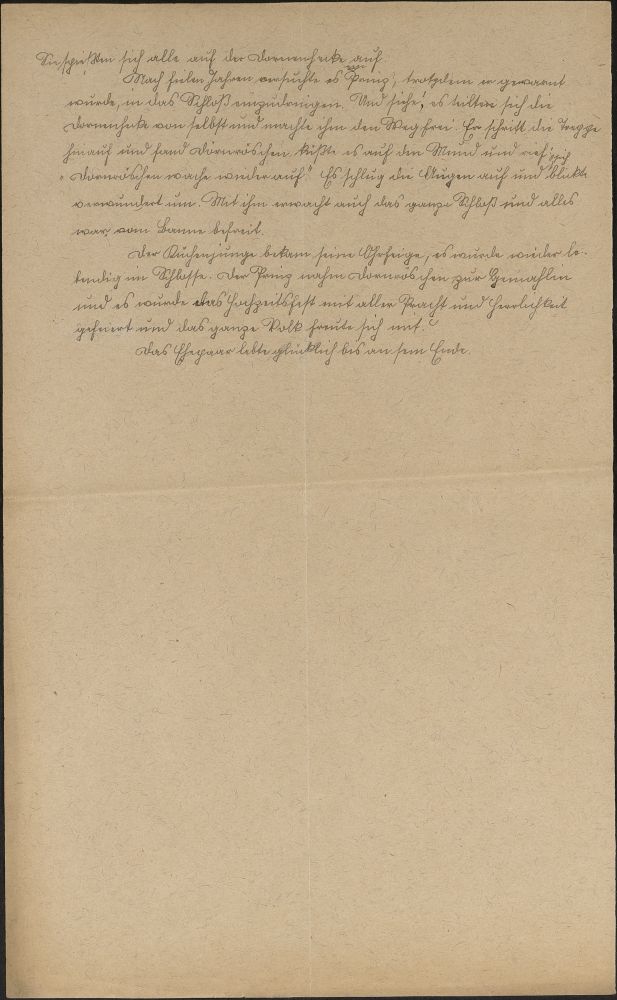 Sie spießten sich alle auf der Dornenhecke auf.
Nach fielen Jahren versuchte es Prinz, trotzdem er gewarnt
wurde, in das Schloß einzudringen. Und siehe, es teilten sich die
Dornenhecke von selbst und machte ihm den Weg frei. Er schritt die Treppe
hinauf und fand Dörnröschen, küßte es auf den Mund und rief
"Dornröschen wache wieder auf." Es schlug die Augen auf und blickte
verwundert um. Mit ihm erwacht auch das ganze Schloß und alles
war vom Banne befreit.
Der Küchenjunge bekam seine Ohrfeige, es wurde wieder le-
bendig im Schlosse. Der Prinz nahm Dornröschen zur Gemahlin
und es wurde das Hochzeitsfest mit aller Pracht und Herrlichkeit
gefeiert und das ganze Volk freute sich mit.
Das Ehepaar lebte glücklich bis an sein Ende.